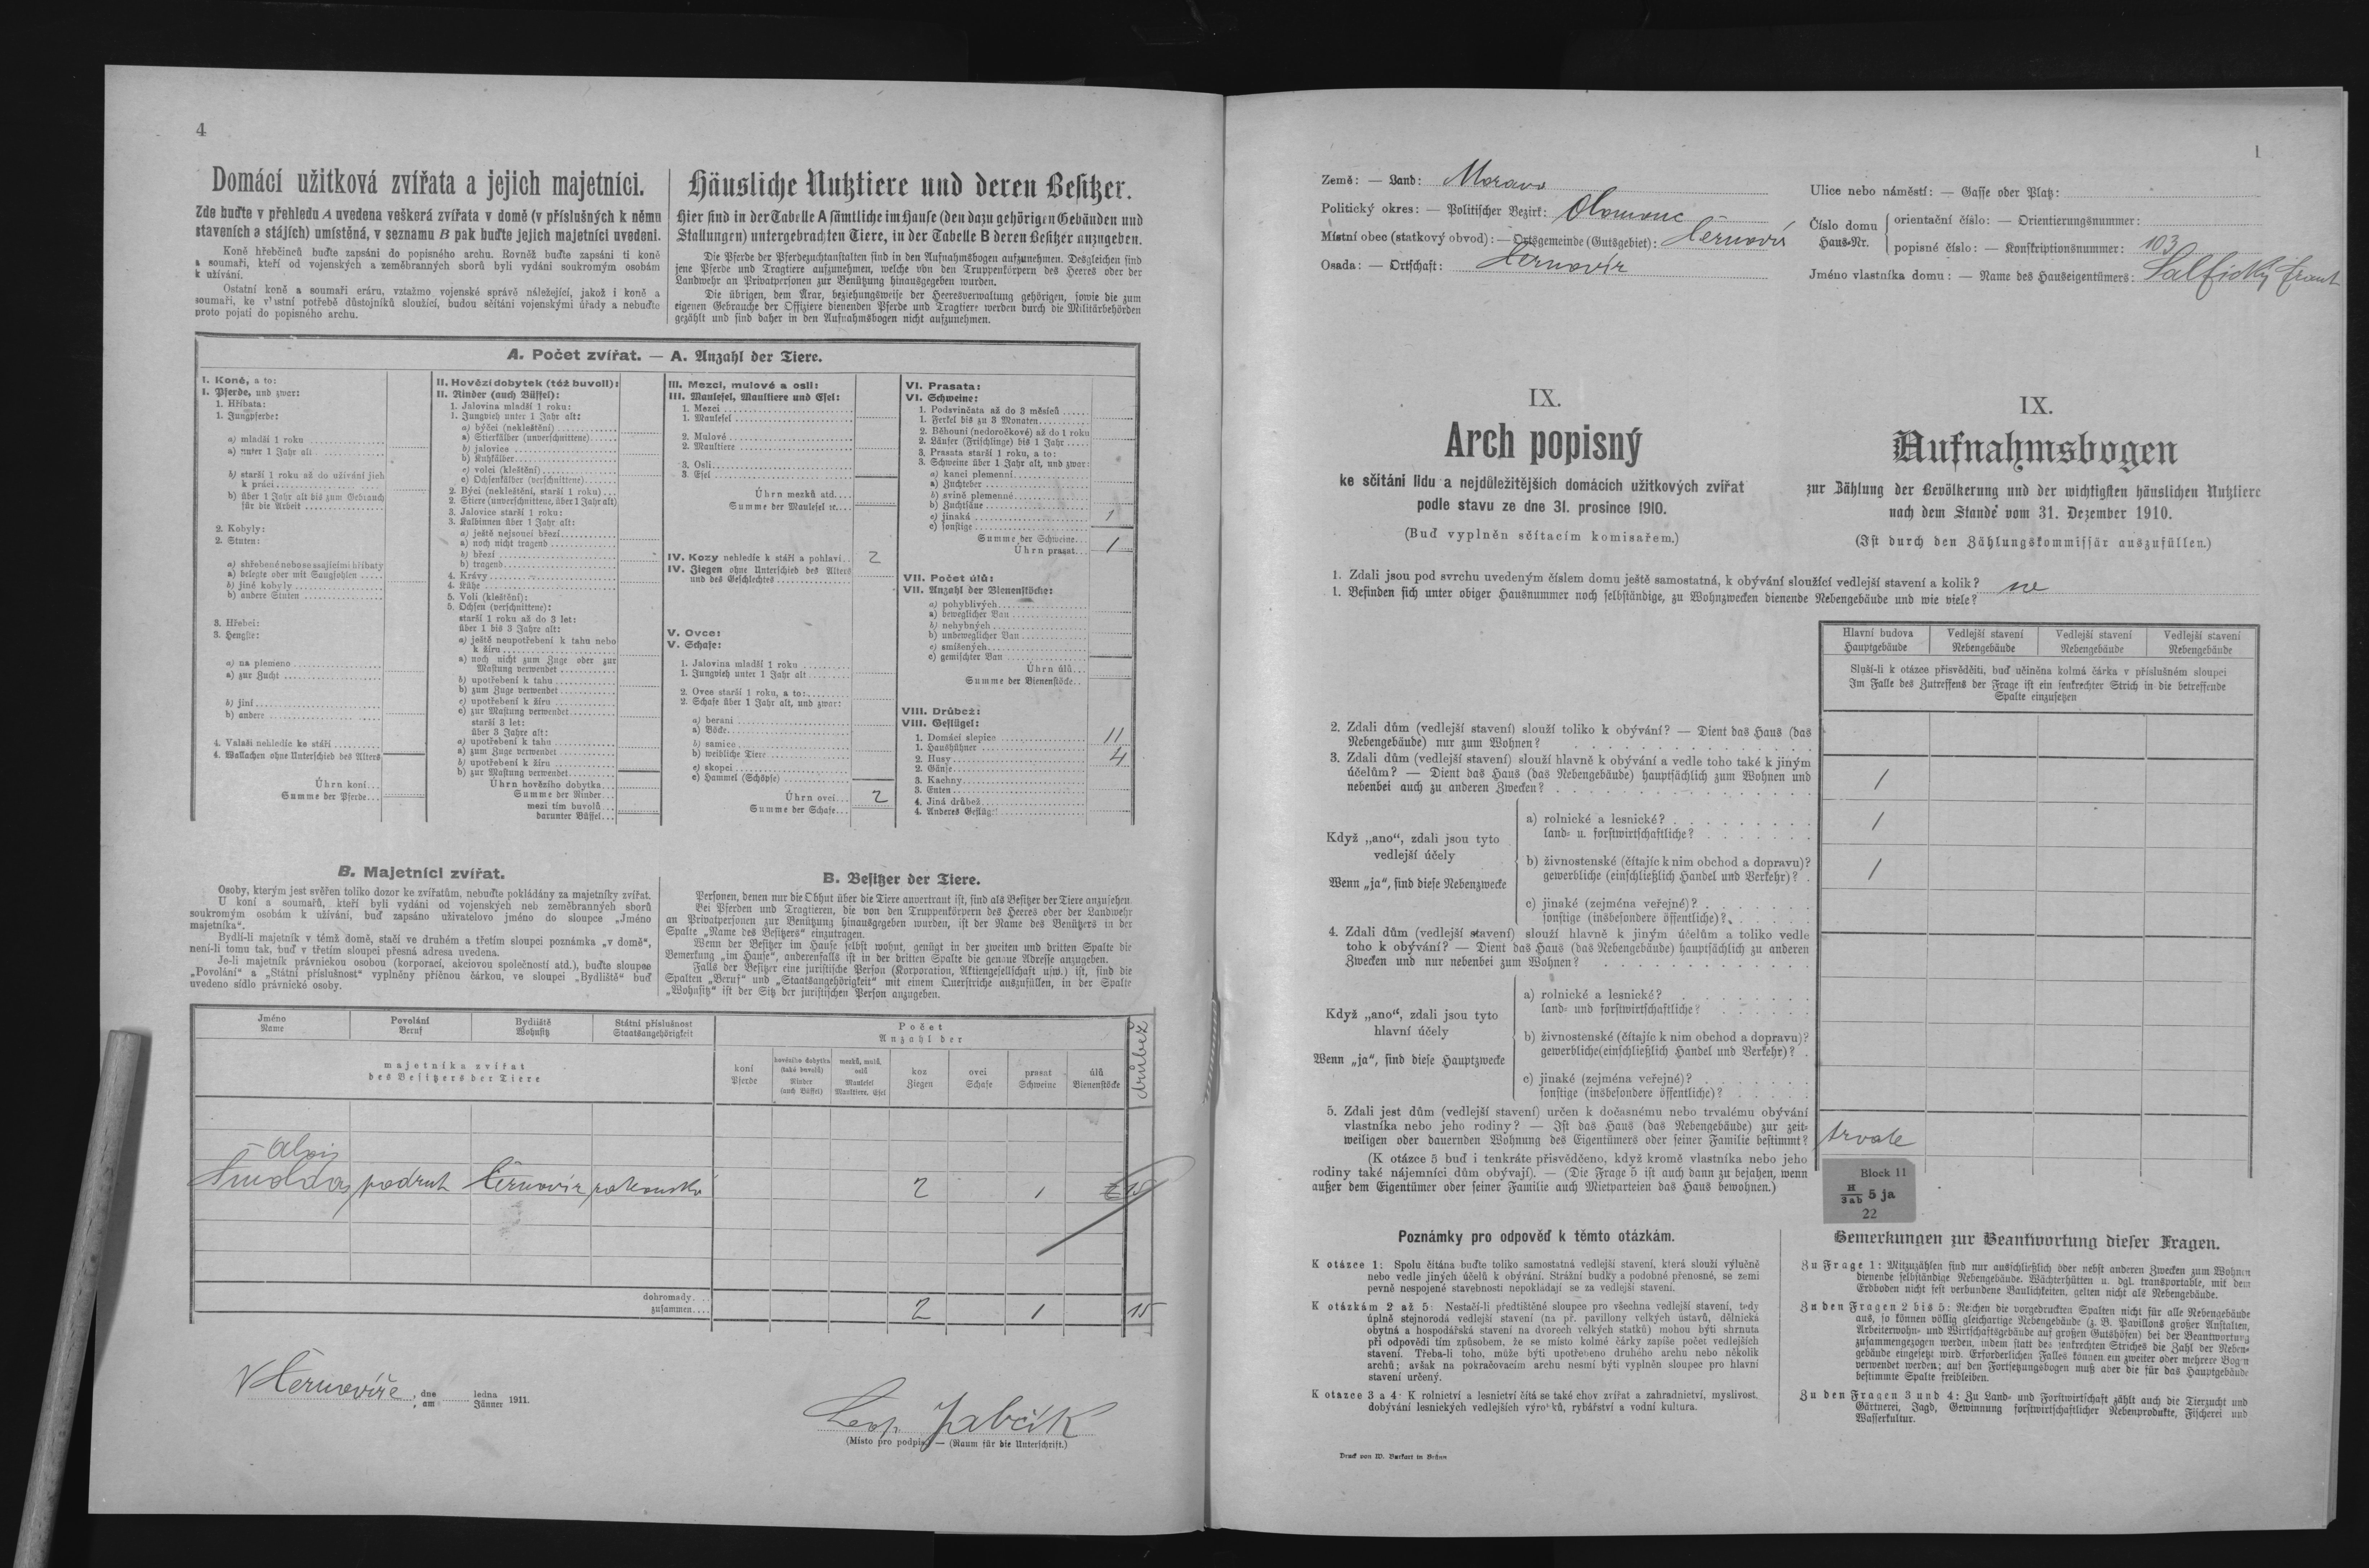 4
Domácí užitková zvířata a jejich majetníci.
Zde buďte v přehledu A uvedena veškerá zvířata v domě (v příslušných k němu
staveních a stájích) umístěná, v seznamu B pak buďte jejich majetníci uvedeni.
Koně hřebčinců buďte zapsáni do popisného archu. Rovněž buďte zapsáni ti koně
a soumaři, kteří od vojenských a zeměbranných sborů byli vydáni soukromým osobám
k užívání.
Ostatní koně a soumaři eráru, vztažmo vojenské správě náležející, jakož i koně a
soumaři, ke vlastní potřebě důstojníků sloužící, budou sčítáni vojenskými úřady a nebuďte
proto pojati do popisného archu.
Häusliche Nutztiere und deren Besitzer.
Hier sind in der Tabelle A sämtliche im Hause (den dazu gehörigen Gebäuden und
Stallungen) untergebrachten Tiere, in der Tabelle B deren Besitzer anzugeben.
Die Pferde der Pferdezuchtanstalten sind in den Aufnahmsbogen aufzunehmen. Desgleichen sind
jene Pferde und Tragtiere aufzunehmen, welche von den Truppenkörpern des Heeres oder der
Landwehr an Privatpersonen zur Benützung hinausgegeben wurden.
Die übrigen, dem Ärar, beziehungsweise der Heeresverwaltung gehörigen, sowie die zum
eigenen Gebrauche der Offiziere dienenden Pferde und Tragtiere werden durch die Militärbehörden
gezählt und sind daher in den Aufnahmsbogen nicht aufzunehmen.
A. Počet zvířat. — A. Anzahl der Tiere.
I. Koně, a to:
I. Pferde, und zwar:
1. Hříbata:
1. Jungpferde:
a) mladší 1 roku
a) unter 1 Jahr alt
b) starší 1 roku až do užívání jich
k práci
b) über 1 Jahr alt bis zum Gebrauch
für die Arbeit
2. Kobyly:
2. Stuten:
a) shřebené nebo se ssajícími hříbaty
a) belegte oder mit Saugfohlen
b) jiné kobyly
b) andere Stuten
3. Hřebci:
3. Hengste:
a) na plemeno
a) zur Zucht
b) jiní
b) andere
4. Valaši nehledíc ke stáří
4. Wallachen ohne Unterschied des Alters
Úhrn koní...
Summe der Pferde...
II. Hovězí dobytek (též buvoli):
II. Rinder (auch Büffel):
1. Jalovina mladší 1 roku:
1. Jungvieh unter 1 Jahr alt:
a) býčci (nekleštění)
a) Stierkälber (unverschnittene)
b) jalovice
b) Kuhkälber
c) volci (kleštění)
c) Ochsenkälber (verschnittene)
2. Býci (nekleštění, starší 1 roku)
2. Stiere (unverschnittene, über 1 Jahr alt)
3. Jalovice starší 1 roku:
3. Kalbinnen über 1 Jahr alt:
a) ještě nejsoucí březí
a) noch nicht tragend
b) březí
b) tragend
4. Krávy
4. Kühe
5. Voli (kleštění):
5. Ochsen (verschnittene):
starší 1 roku až do 3 let:
über 1 bis 3 Jahre alt:
a) ještě neupotřebení k tahu nebo
k žíru
a) noch nicht zum Zuge oder zur
Mastung verwendet
b) upotřebení k tahu
b) zum Zuge verwendet
c) upotřebení k žíru
c) zur Mastung verwendet
starší 3 let:
über 3 Jahre alt:
a) upotřebení k tahu
a) zum Zuge verwendet
b) upotřebení k žíru
b) zur Mastung verwendet
Úhrn hovězího dobytka...
Summe der Rinder...
mezi tím buvolů...
darunter Büffel...
III. Mezci, mulové a osli:
III. Maulesel, Maultiere und Esel:
1. Mezci
1. Maulesel
2. Mulové
2. Maultiere
3. Osli
3. Esel
Úhrn mezků atd....
Summe der Maulesel ec....
IV. Kozy nehledíc k stáří a pohlaví.. 2
IV. Ziegen ohne Unterschied des Alters
und des Geschlechtes
V. Ovce:
V. Schafe:
1. Jalovina mladší 1 roku
1. Jungvieh unter 1 Jahr alt
2. Ovce starší 1 roku, a to:
2. Schafe über 1 Jahr alt, und zwar:
a) berani
a) Böcke
b) samice
b) weibliche Tiere
c) skopci
c) Hammel (Schöpse)
Úhrn ovcí... 2
Summe der Schafe...
VI. Prasata:
VI. Schweine:
1. Podsvinčata až do 3 měsíců
1. Ferkel bis zu 3 Monaten
2. Běhouni (nedoročkové) až do 1 roku
2. Läufer (Frischlinge) bis 1 Jahr
3. Prasata starší 1 roku, a to:
3. Schweine über 1 Jahr alt, und zwar:
a) kanci plemenní
a) Zuchteber
b) svině plemenné
b) Zuchtsäue
c) jinaká 1
c) sonstige
Summe der Schweine...
Úhrn prasat... 1
VII. Počet úlů:
VII. Anzahl der Bienenstöcke:
a) pohyblivých
a) beweglicher Bau
b) nehybných
b) unbeweglicher Bau
c) smíšených
c) gemischter Bau
Úhrn úlů...
Summe der Bienenstöcke..
VIII. Drůbež:
VIII. Geflügel:
1. Domácí slepice 11
1. Haushühner
2. Husy 4
2. Gänse
3. Kachny
3. Enten
4. Jiná drůbež
4. Anderes Geflügel
B. Majetníci zvířat.
Osoby, kterým jest svěřen toliko dozor ke zvířatům, nebuďte pokládány za majetníky zvířat.
U koní a soumarů, kteří byli vydáni od vojenských neb zeměbranných sborů
soukromým osobám k užívání, buď zapsáno uživatelovo jméno do sloupce „Jméno
majetníka“.
Bydlí-li majetník v témž domě, stačí ve druhém a třetím sloupci poznámka „v domě“,
není-li tomu tak, buď v třetím sloupci přesná adresa uvedena.
Je-li majetník právnickou osobou (korporací, akciovou společností atd.), buďte sloupce
„Povolání“ a „Státní příslušnost“ vyplněny příčnou čárkou, ve sloupci „Bydliště“ buď
uvedeno sídlo právnické osoby.
B. Besitzer der Tiere.
Personen, denen nur die Obhut über die Tiere anvertraut ist, sind als Besitzer der Tiere anzusehen.
Bei Pferden und Tragtieren, die von den Truppenkörpern des Heeres oder der Landwehr
an Privatpersonen zur Benützung hinausgegeben wurden, ist der Name des Benützers in der
Spalte „Name des Besitzers“ einzutragen.
Wenn der Besitzer im Hause selbst wohnt, genügt in der zweiten und dritten Spalte die
Bemerkung „im Hause“, anderenfalls ist in der dritten Spalte die genaue Adresse anzugeben.
Falls der Besitzer eine juristische Person (Korporation, Aktiengesellschaft usw.) ist, sind die
Spalten „Beruf“ und „Staatsangehörigkeit“ mit einem Querstriche auszufüllen, in der Spalte
„Wohnsitz“ ist der Sitz der juristischen Person anzugeben.
Jméno Povolání Bydliště Státní příslušnost Počet
Name Beruf Wohnsitz Staatsangehörigkeit Anzahl der
majetníka zvířat
des Besitzers der Tiere
koní
Pferde
hovězího dobytka
(také buvolů)
Rinder
(auch Büffel)
mezků, mulů,
oslů
Maulesel
Maultiere, Esel
koz
Ziegen
ovcí
Schafe
prasat
Schweine
úlů
Bienenstöcke
drůbež
Alois
Smolda podruh Černovír rakouská 2 1 15
dohromady...
zusammen.... 2 1 15
V Černovíře, dne ledna
am Jänner 1911.
Leop. Jabčík
(Místo pro podpis) — (Raum für die Unterschrift.)
1
Země: — Land: Morava
Politický okres: — Politischer Bezirk: Olomouc
Místní obec (statkový obvod): — Ortsgemeinde (Gutsgebiet): Černovír
Osada: — Ortschaft: Černovír
Ulice nebo náměstí: — Gasse oder Platz:
Číslo domu orientační číslo: — Orientierungsnummer:
Haus-Nr. popisné číslo: — Konskriptionsnummer: 103
Jméno vlastníka domu: — Name des Hauseigentümers: Salfický Frant
IX.
Arch popisný
ke sčítání lidu a nejdůležitějších domácích užitkových zvířat
podle stavu ze dne 31. prosince 1910.
(Buď vyplněn sčítacím komisařem.)
IX.
Aufnahmsbogen
zur Zählung der Bevölkerung und der wichtigsten häuslichen Nutztiere
nach dem Stande vom 31. Dezember 1910.
(Ist durch den Zählungskommissär auszufüllen.)
1. Zdali jsou pod svrchu uvedeným číslem domu ještě samostatná, k obývání sloužící vedlejší stavení a kolik? ne
1. Befinden sich unter obiger Hausnummer noch selbständige, zu Wohnzwecken dienende Nebengebäude und wie viele?
Hlavní budova Vedlejší stavení Vedlejší stavení Vedlejší stavení
Hauptgebäude Nebengebäude Nebengebäude Nebengebäude
Sluší-li k otázce přisvědčiti, buď učiněna kolmá čárka v příslušném sloupci
Im Falle des Zutreffens der Frage ist ein senkrechter Strich in die betreffende
Spalte einzusetzen
2. Zdali dům (vedlejší stavení) slouží toliko k obývání? — Dient das Haus (das
Nebengebäude) nur zum Wohnen?
3. Zdali dům (vedlejší stavení) slouží hlavně k obývání a vedle toho také k jiným
účelům? — Dient das Haus (das Nebengebäude) hauptsächlich zum Wohnen und
nebenbei auch zu anderen Zwecken? 1
Když „ano“, zdali jsou tyto
vedlejší účely
Wenn „ja“, sind diese Nebenzwecke
a) rolnické a lesnické? 1
land- u. forstwirtschaftliche?
b) živnostenské (čítajíc k nim obchod a dopravu)? 1
gewerbliche (einschließlich Handel und Verkehr)?
c) jinaké (zejména veřejné)?
sonstige (insbesondere öffentliche)?
4. Zdali dům (vedlejší stavení) slouží hlavně k jiným účelům a toliko vedle
toho k obývání? — Dient das Haus (das Nebengebäude) hauptsächlich zu anderen
Zwecken und nur nebenbei zum Wohnen?
Když „ano“, zdali jsou tyto
hlavní účely
Wenn „ja“, sind diese Hauptzwecke
a) rolnické a lesnické?
land- und forstwirtschaftliche?
b) živnostenské (čítajíc k nim obchod a dopravu)?
gewerbliche (einschließlich Handel und Verkehr)?
c) jinaké (zejména veřejné)?
sonstige (insbesondere öffentliche)?
5. Zdali jest dům (vedlejší stavení) určen k dočasnému nebo trvalému obývání
vlastníka nebo jeho rodiny? — Ist das Haus (das Nebengebäude) zur zeit-
weiligen oder dauernden Wohnung des Eigentümers oder seiner Familie bestimmt? trvale
(K otázce 5 buď i tenkráte přisvědčeno, když kromě vlastníka nebo jeho
rodiny také nájemníci dům obývají). — (Die Frage 5 ist auch dann zu bejahen, wenn
außer dem Eigentümer oder seiner Familie auch Mietparteien das Haus bewohnen.)
Block 11
H
3 a b 5 ja
22
Poznámky pro odpověď k těmto otázkám.
K otázce 1: Spolu čítána buďte toliko samostatná vedlejší stavení, která slouží výlučně
nebo vedle jiných účelů k obývání. Strážní budky a podobné přenosné, se zemí
pevně nespojené stavebnosti nepokládají se za vedlejší stavení.
K otázkám 2 až 5: Nestačí-li předtištěné sloupce pro všechna vedlejší stavení, tedy
úplně stejnorodá vedlejší stavení (na př. pavillony velkých ústavů, dělnická
obytná a hospodářská stavení na dvorech velkých statků) mohou býti shrnuta
při odpovědi tím způsobem, že se místo kolmé čárky zapíše počet vedlejších
stavení. Třeba-li toho, může býti upotřebeno druhého archu nebo několik
archů; avšak na pokračovacím archu nesmí býti vyplněn sloupec pro hlavní
stavení určený.
K otázce 3 a 4: K rolnictví a lesnictví čítá se také chov zvířat a zahradnictví, myslivost,
dobývání lesnických vedlejších výrobků, rybářství a vodní kultura.
Bemerkungen zur Beantwortung dieser Fragen.
Zu Frage 1: Mitzuzählen sind nur ausschließlich oder nebst anderen Zwecken zum Wohnen
dienende selbständige Nebengebäude. Wächterhütten u. dgl. transportable, mit dem
Erdboden nicht fest verbundene Baulichkeiten, gelten nicht als Nebengebäude.
Zu den Fragen 2 bis 5: Reichen die vorgedruckten Spalten nicht für alle Nebengebäude
aus, so können völlig gleichartige Nebengebäude (z. B. Pavillons großer Anstalten,
Arbeiterwohn- und Wirtschaftsgebäude auf großen Gutshöfen) bei der Beantwortung
zusammengezogen werden, indem statt des senkrechten Striches die Zahl der Neben-
gebäude eingesetzt wird. Erforderlichen Falles können ein zweiter oder mehrere Bogen
verwendet werden; auf den Fortsetzungsbogen muß aber die für das Hauptgebäude
bestimmte Spalte freibleiben.
Zu den Fragen 3 und 4: Zu Land- und Forstwirtschaft zählt auch die Tierzucht und
Gärtnerei, Jagd, Gewinnung forstwirtschaftlicher Nebenprodukte, Fischerei und
Wasserkultur.
Druck von W. Burkart in Brünn